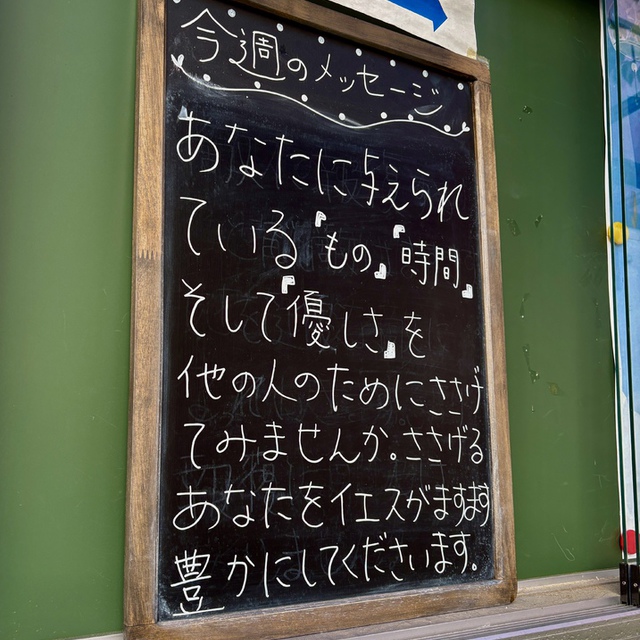 今週のメッセージ
あなたに与えられ
ている『もの』『時間』
そして『優しさ』を
他の人のためにささげ
てみませんか。ささげる
あなたをイエスがますます
豊かにしてくださいます。